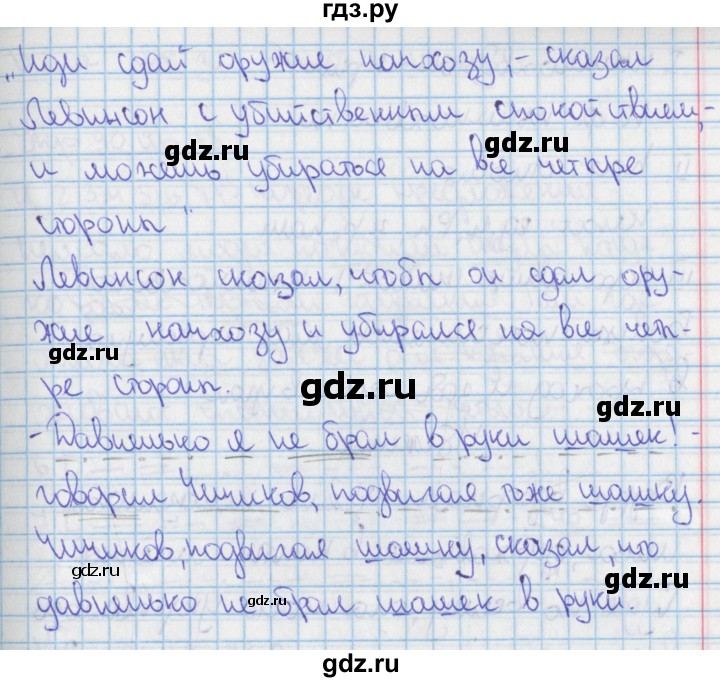 гдз.ру
„Иди сдай оружие начхозу, - сказал
Левинсон с убийственным спокойствием, -
gdz.ru gdz.ru
и можешь убираться на все четыре
стороны"
gdz.ru
Левинсон сказал, чтобы он сдал ору-
жие начхозу и убирался на все четы-
gdz.ru
ре стороны.
gdz.ru
gdz.ru
- Давненько я не брал в руки шашек! -
говорил Чичиков, подвигая тоже шашку.
Чичиков, подвигая шашку, сказал, что
gdz.ru gdz.ru
давненько не брал шашек в руки.
gdz.ru
gdz.ru